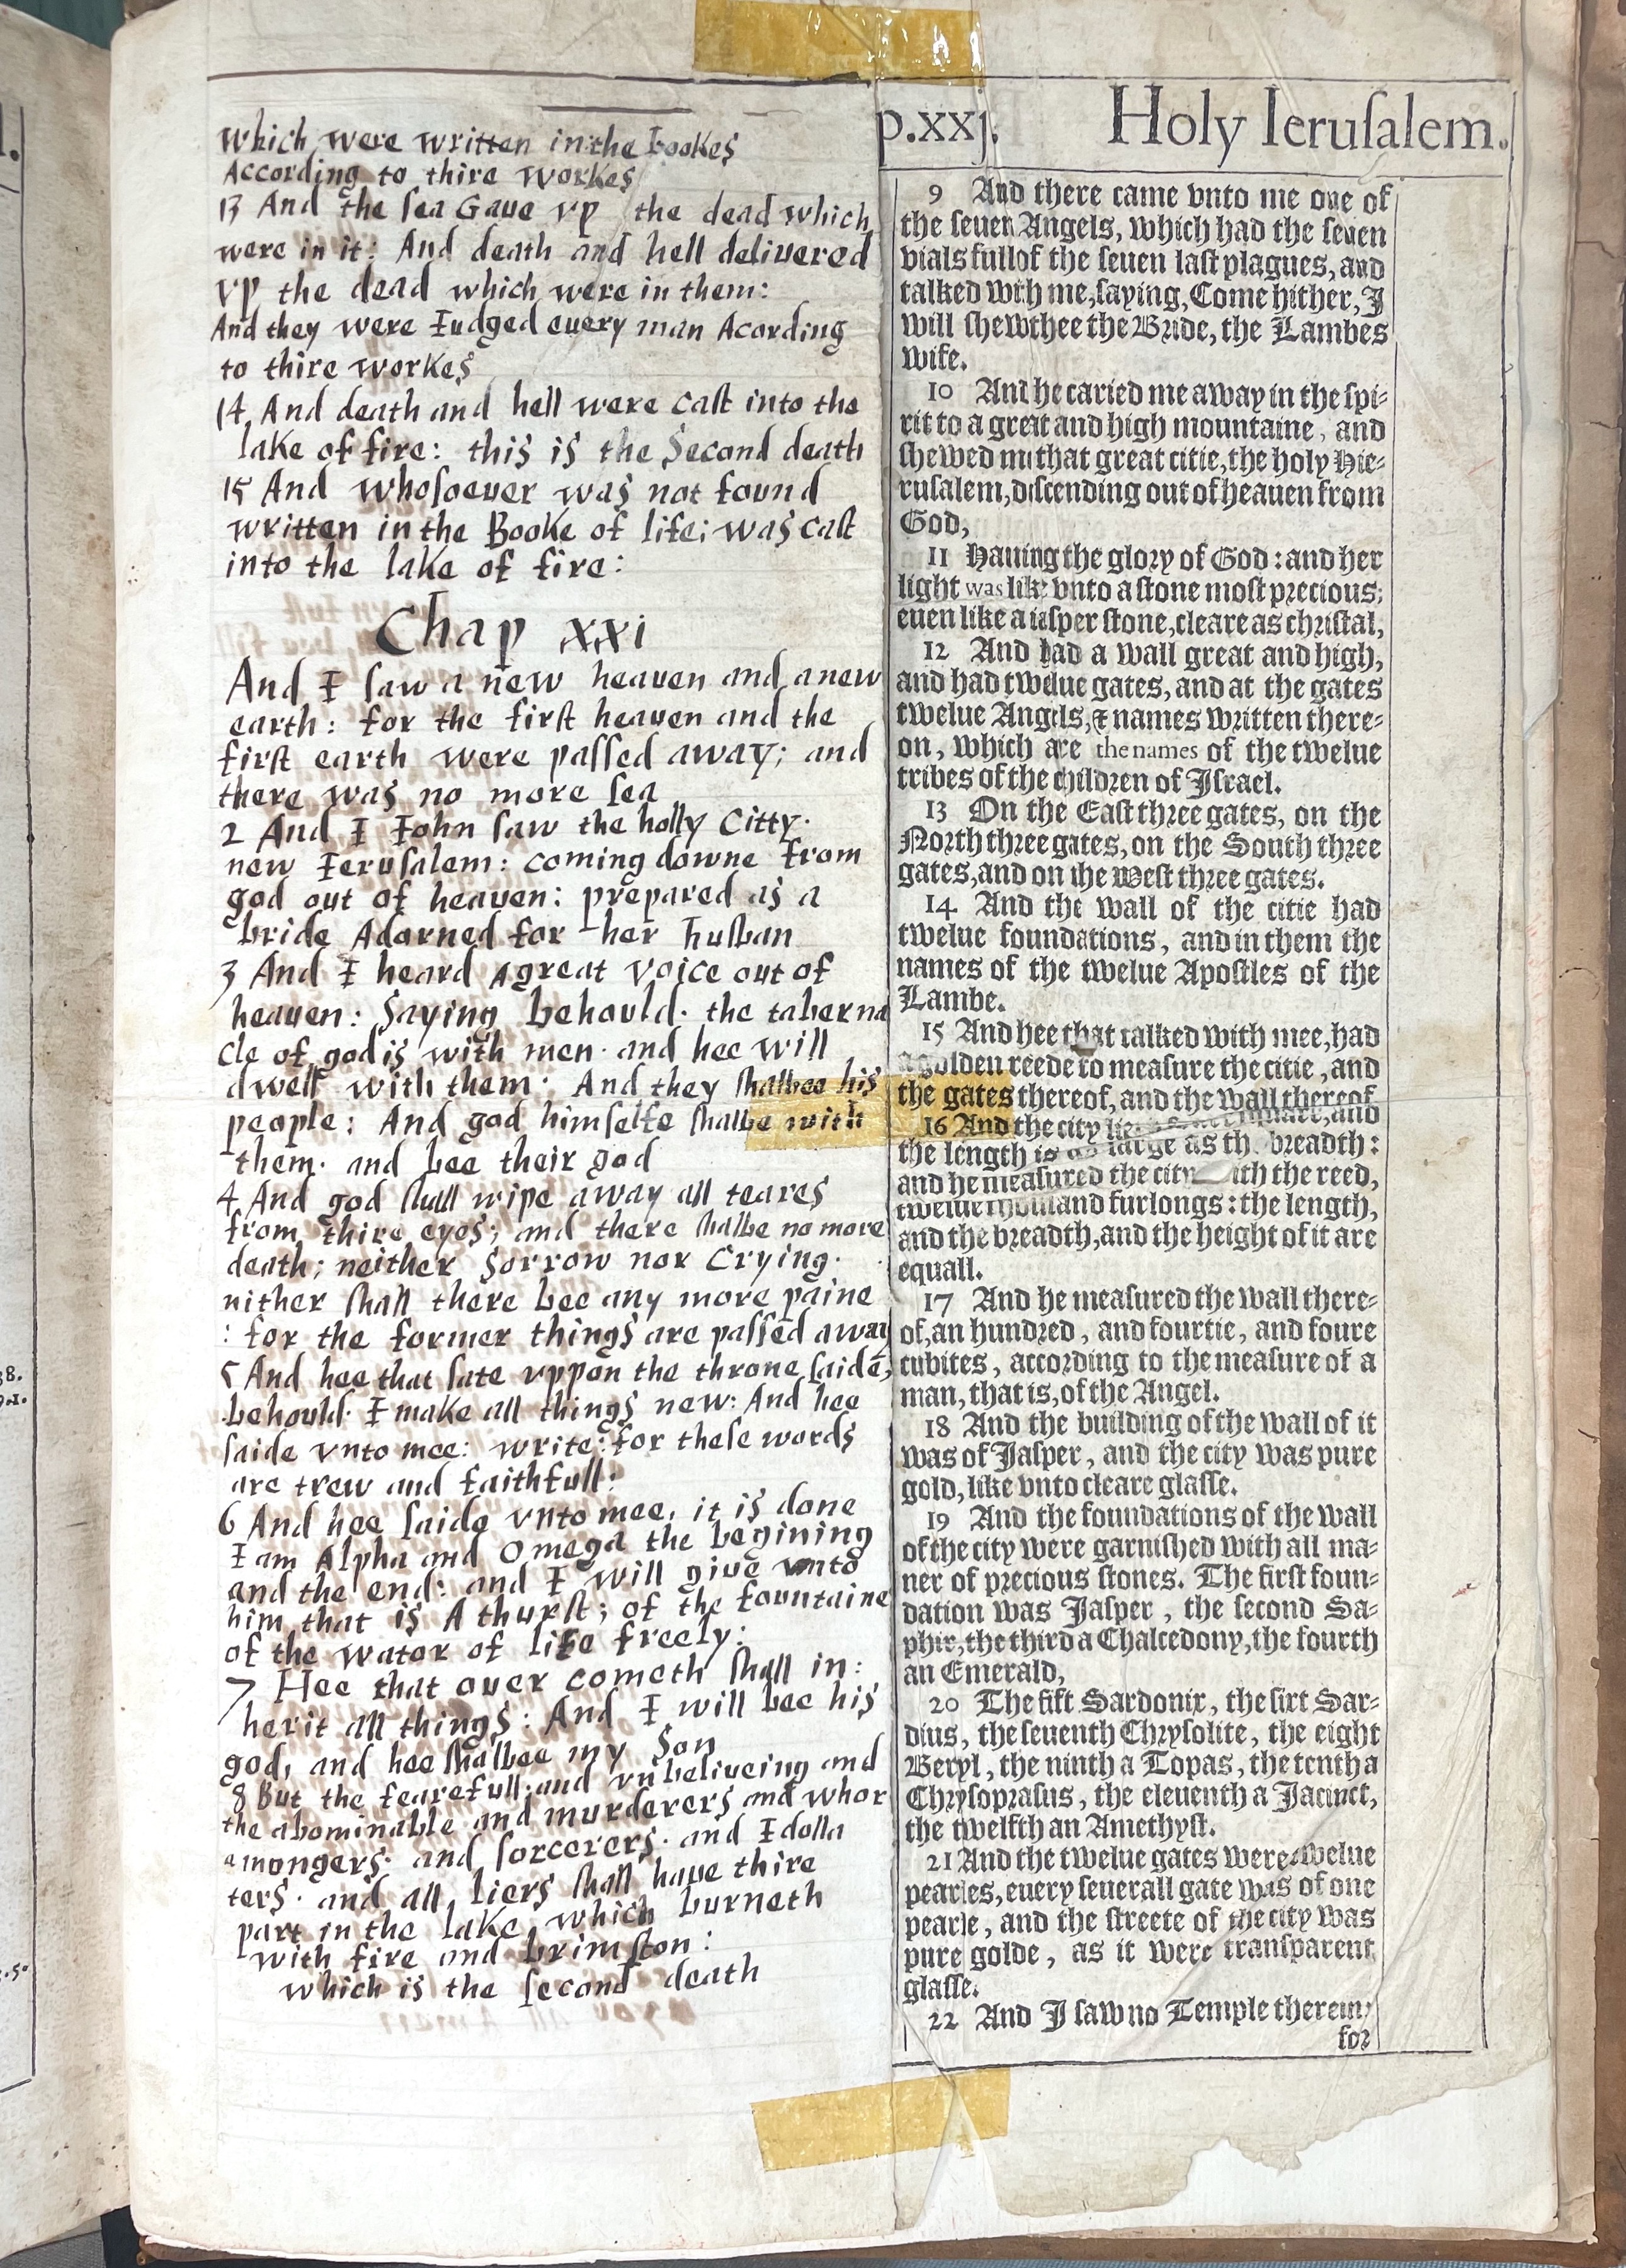 which were written in the bookes
According to thire workes
13 And the ſea Gaue vp the dead which
were in it: And death and hell deliuered
vp the dead which were in them:
And they were Iudged euery man Acording
to thire workes
14 And death and hell were caſt into the
lake of fire: this is the Second death
15 And whoſoeuer was not found
written in the Booke of life: was caſt
into the lake of fire:
Chap xxi
And I ſaw a new heauen and a new
earth: for the firſt heauen and the
firſt earth were paſſed away; and
there was no more ſea
2 And I Iohn ſaw the holly Citty·
new Ieruſalem: coming downe from
god out of heauen: prepared as a
bride Adorned for her huſban
3 And I heard A great voice out of
heauen: Saying behould· the taberna
cle of god is with men· and hee will
dwell with them· And they ſhalbee his
people: And god himſelfe ſhalbe with
them· and bee their god
4 And god ſhall wipe away all teares
from thire eyes; and there ſhalbe no more
death; neither Sorrow nor Crying·
nither ſhall there bee any more paine
: for the former things are paſſed away
5 And hee that ſate vppon the throne ſaide,
behould· I make all things new: And hee
ſaide vnto mee: write: for theſe words
are trew and faithfull:
6 And hee ſaide vnto mee, it is done
I am Alpha and Omega the begining
and the end: and I will giue vnto
him that is A thurſt; of the fountaine
of the wator of life freely:
7 Hee that ouer cometh ſhall in:
herit all things: And I will bee his
god, and hee ſhalbee my Son
8 But the fearefull; and vnbelieueing and
the abominable and murderers and whor
amongers· and ſorcerers· and Idolla
ters· and all liers ſhall haue thire
part in the lake which burneth
with fire and brimſton:
which is the ſecond death
p.xxj. Holy Ieruſalem.
9 And there came vnto me one of
the ſeuen Angels, which had the ſeuen
vials full of the ſeuen laſt plagues, and
talked with me, ſaying, Come hither, I
will ſhew thee the Bride, the Lambes
wife.
10 And he caried me away in the ſpi-
rit to a great and high mountaine, and
ſhewed me that great citie, the holy Hie-
ruſalem, deſcending out of heauen from
God,
11 Hauing the glory of God: and her
light was like vnto a ſtone moſt precious,
euen like a iaſper ſtone, cleare as chriſtal,
12 And had a wall great and high,
and had twelue gates, and at the gates
twelue Angels, & names written there-
on, which are the names of the twelue
tribes of the children of Iſrael.
13 On the Eaſt three gates, on the
North three gates, on the South three
gates, and on the Weſt three gates.
14 And the wall of the citie had
twelue foundations, and in them the
names of the twelue Apoſtles of the
Lambe.
15 And hee that talked with mee, had
a golden reede to meaſure the citie, and
the gates thereof, and the wall thereof.
16 And the city ſquare, and
the length is as large as the breadth:
and he meaſured the city with the reed,
twelue thouſand furlongs: the length,
and the breadth, and the height of it are
equall.
17 And he meaſured the wall there-
of, an hundred, and fourtie, and foure
cubites, according to the meaſure of a
man, that is, of the Angel.
18 And the building of the wall of it
was of Jaſper, and the city was pure
gold, like vnto cleare glaſſe.
19 And the foundations of the wall
of the city were garniſhed with all ma-
ner of precious ſtones. The firſt foun-
dation was Jaſper, the ſecond Sa-
phir, the third a Chalcedony, the fourth
an Emerald,
20 The fift Sardonix, the ſixt Sar-
dius, the ſeuenth Chryſolite, the eight
Beryl, the ninth a Topas, the tenth a
Chryſopraſus, the eleuenth a Jacinct,
the twelfth an Amethyſt.
21 And the twelue gates were twelue
pearles, euery ſeuerall gate was of one
pearle, and the ſtreete of the city was
pure golde, as it were tranſparent
glaſſe.
22 And I ſaw no Temple therein:
for